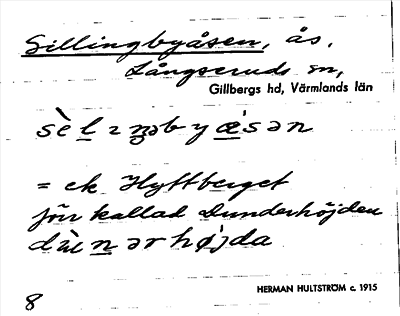 Sillingbyåsen, ås,
Långseruds sn,
Gillbergs hd, Värmlands län
= ek. Hyftberget
förr kallad Dunderhöjden
HERMAN HULTSTRÖM c. 1915
8